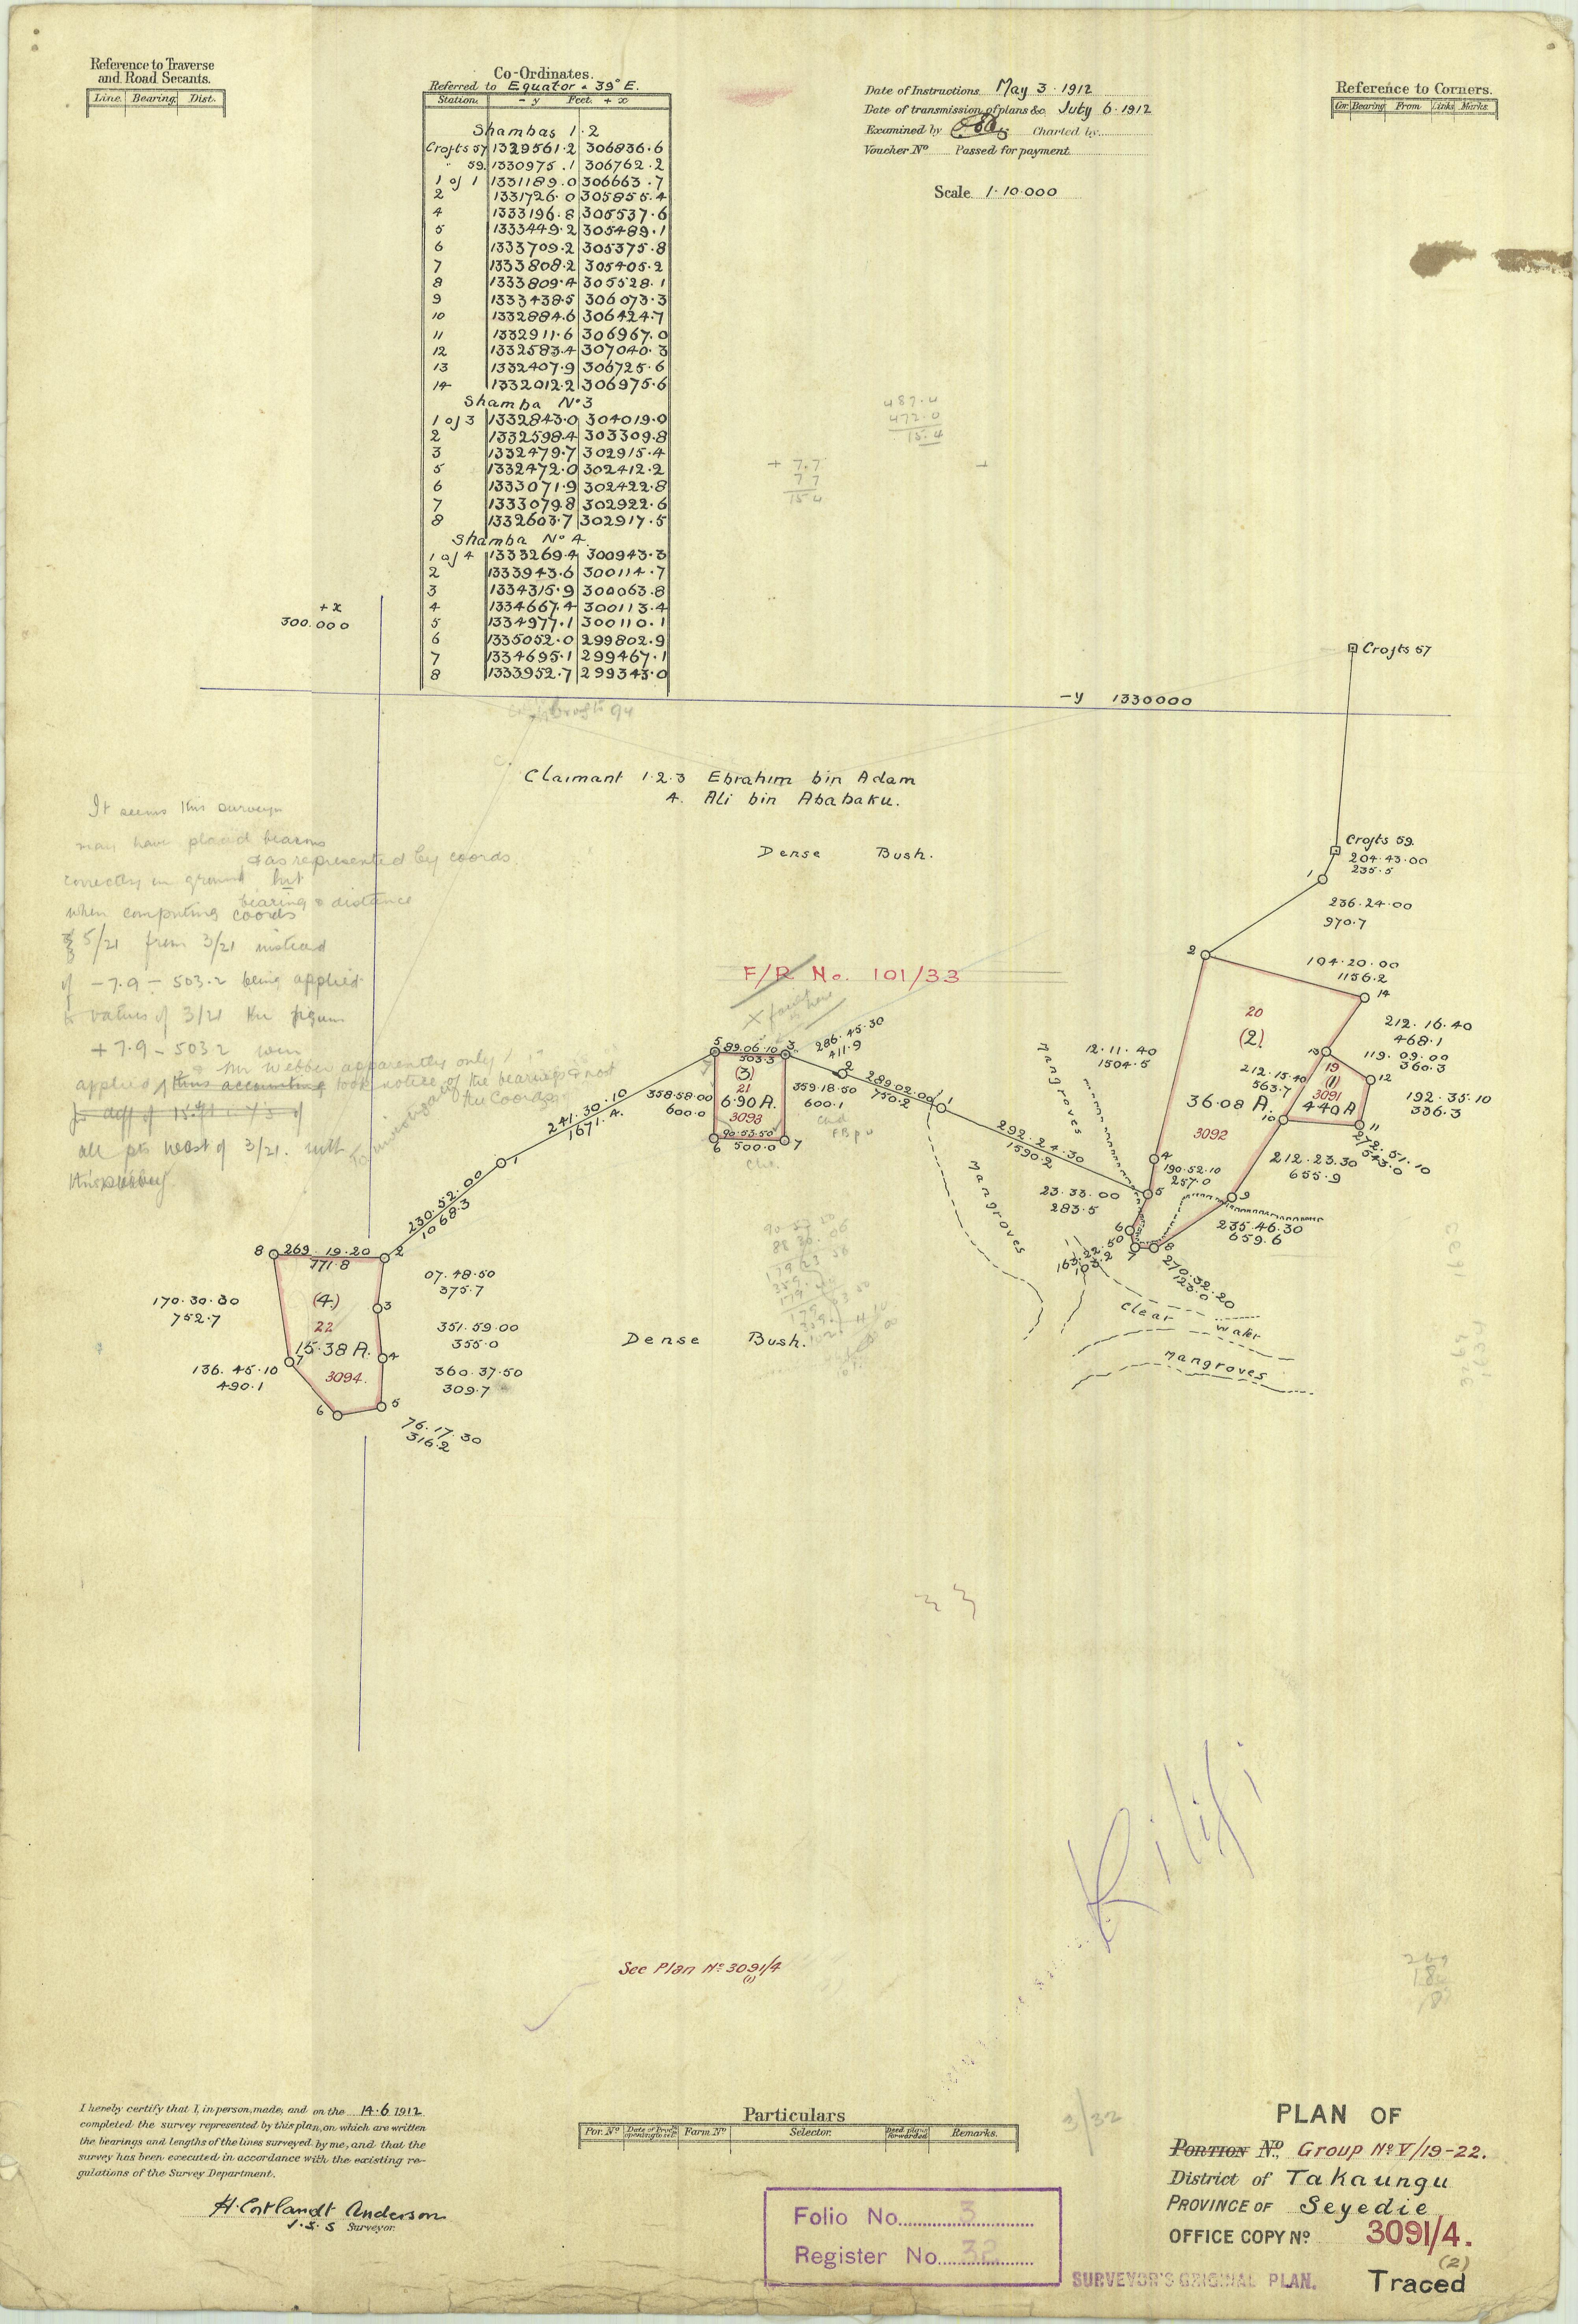 Reference to Traverse
and Road Secants.
Line. Bearing. Dist.
Co-Ordinates.
Referred to Equator & 39° E.
Station. - y Feet. + x
Shambas 1·2
Crofts 57 1329561·2 306836·6
" 59. 1330975·1 306762·2
1 of 1 1331189·0 306663·7
2 1331726·0 305855·4
4 1333196·8 305537·6
5 1333449·2 305489·1
6 1333709·2 305375·8
7 1333808·2 305405·2
8 1333809·4 305528·1
9 1333438·5 306073·3
10 1332884·6 306424·7
11 1332911·6 306967·0
12 1332583·4 307040·3
13 1332407·9 306725·6
14 1332012·2 306975·6
Shamba Nº 3
1 of 3 1332843·0 304019·0
2 1332598·4 303309·8
3 1332479·7 302915·4
5 1332472·0 302412·2
6 1333071·9 302422·8
7 1333079·8 302922·6
8 1332603·7 302917·5
Shamba Nº 4.
1 of 4 1333269·4 300943·3
2 1333943·6 300114·7
3 1334315·9 300063·8
4 1334667·4 300113·4
5 1334977·1 300110·1
6 1335052·0 299802·9
7 1334695·1 299467·1
8 1333952·7 299343·0
Date of Instructions May 3·1912
Date of transmission of plans &c. July 6·1912
Examined by Charted by
Voucher Nº Passed for payment
Scale 1·10·000
Reference to Corners.
Cor. Bearing From Links Marks.
487.4
472.0
15.4
+ 7.7
7 7
15 4
+ x
300.000
- y 1330000
Crofts 57
Claimant 1·2·3 Ebrahim bin Adam
4. Ali bin Ababaku.
Dense Bush.
It seems this surveyor
may have placed beacons
& as represented by coords.
correctly on ground but
bearing & distance
when computing coords
5/21 from 3/21 instead
of -7.9 - 503.2 being applied
to values of 3/21 the figures
+ 7.9 - 503.2 were
Mr Webber apparently only
applied thus accounting took notice of the bearings & not
the Coords
for diff of 15.4
all pts west of 3/21.
F/R No. 101/33
Crofts 59.
204·43·00
235·5
1
236·24·00
970·7
2
104·20·00
1156·2
14
20
(2)
212·16·40
468·1
13
119·09·00
360·3
12
19
(1)
3091
4·40 A
192·35·10
336·3
11
272·51·10
543·0
212·15·40
563·7
10
12·11·40
1504·5
36·08 A.
3092
212·23·30
655·9
9
235·46·30
659·6
4
190·52·10
257·0
5
23·33·00
283·5
6
7
8
270·32·20
123·0
Mangroves
Mangroves
Clear Water
Mangroves
292·24·30
1590·2
1
289·02·00
750·2
2
286·45·30
411·9
3
5
89·06·10
503·3
(3)
21
6·90 A.
3093
358·58·00
600·0
359·18·50
600·1
90·53·50
500·0
6
7
241·30·10
1671·4
1
230·52·00
1068·3
8
269·19·20
771·8
2
07·48·50
375·7
3
351·59·00
355·0
4
360·37·50
309·7
5
76·17·30
316·2
6
136·45·10
490·1
7
170·30·30
752·7
(4)
22
15·38 A.
3094.
Dense Bush.
Kilifi
See Plan Nº 3091/4
(1)
I hereby certify that I, in person, made, and on the 14·6 1912
completed the survey represented by this plan, on which are written
the bearings and lengths of the lines surveyed by me, and that the
survey has been executed in accordance with the existing re-
gulations of the Survey Department.
H. Cortlandt Anderson
J. S. S Surveyor.
Particulars
Por. Nº Farm Nº Selector. Remarks.
3/32
Folio No. 3
Register No. 32
PLAN OF
PORTION Nº. Group Nº V/19-22.
District of Takaungu
PROVINCE OF Seyedie
OFFICE COPY Nº 3091/4.
(2)
SURVEYOR'S ORIGINAL PLAN.
Traced